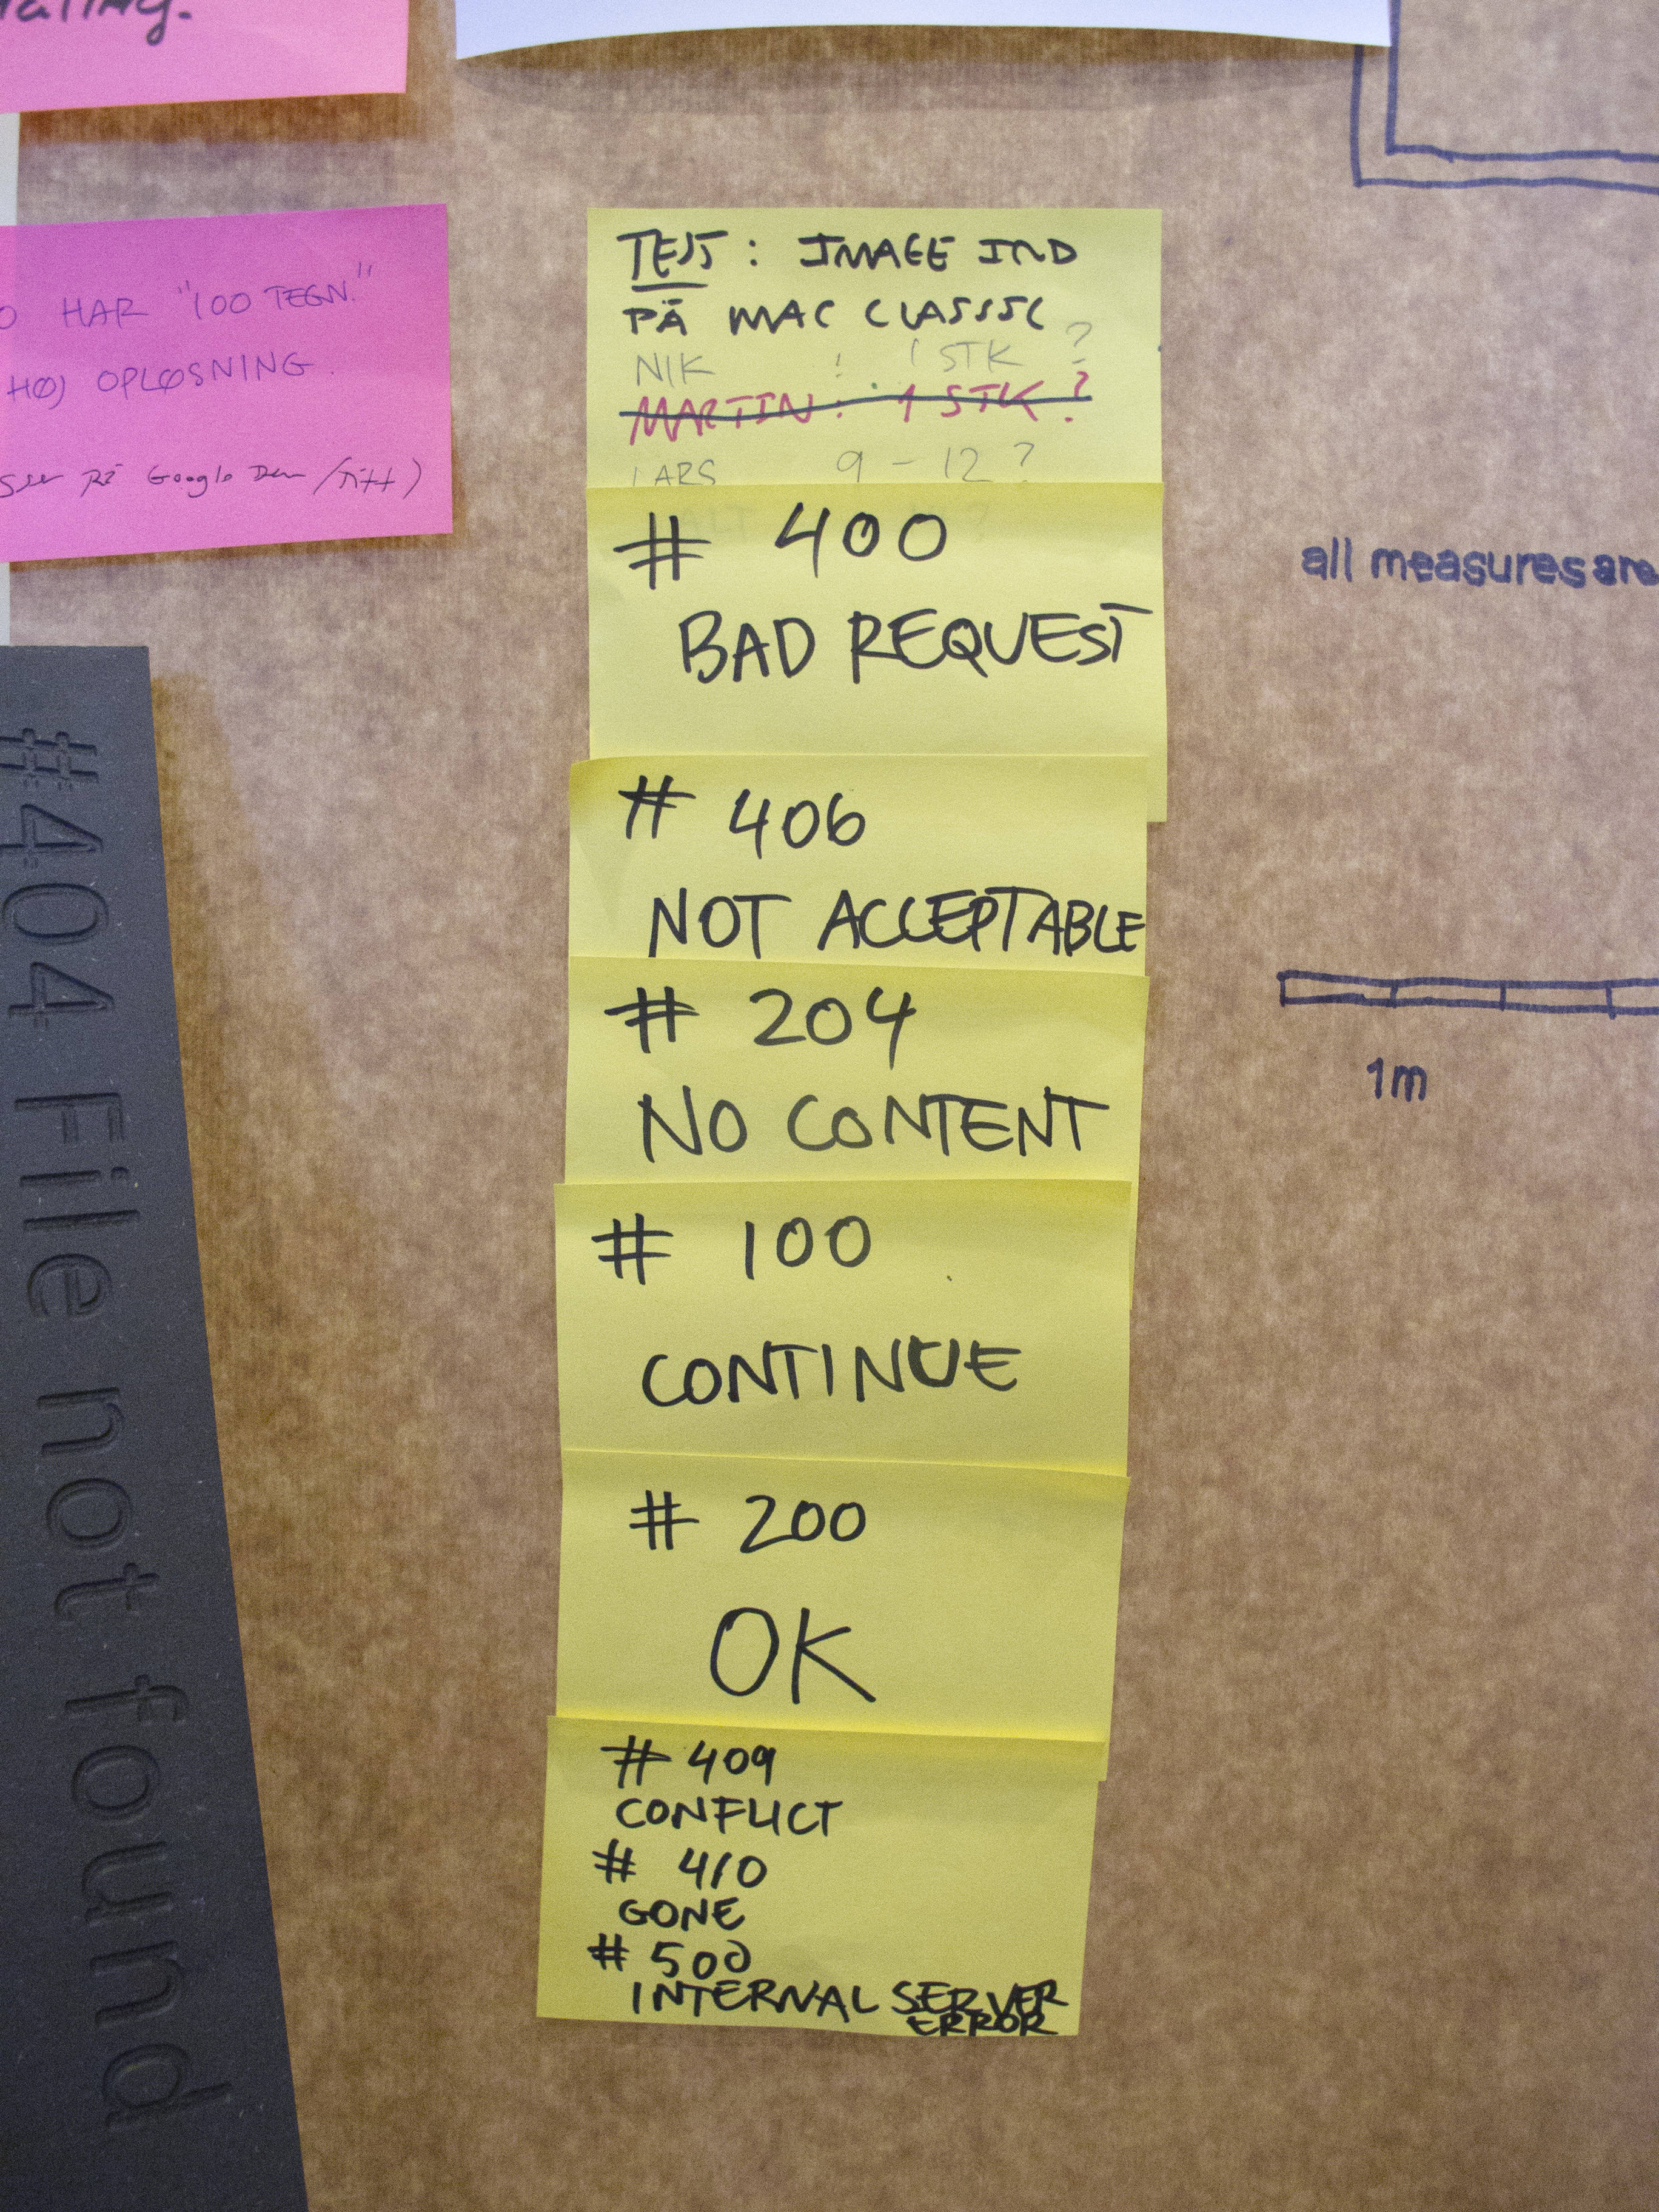 HAR "100 TEGN."
HØJ OPLØSNING.
på Google
TEST: IMAGE IND
PÅ MAC CLASSIC
NIK : 1 STK ?
MARTIN: 1 STK ?
LARS 9 - 12 ?
# 400
BAD REQUEST
# 406
NOT ACCEPTABLE
# 204
NO CONTENT
# 100
CONTINUE
# 200
OK
# 409
CONFLICT
# 410
GONE
# 500
INTERNAL SERVER
ERROR
#404 File not found
all measures are
1m